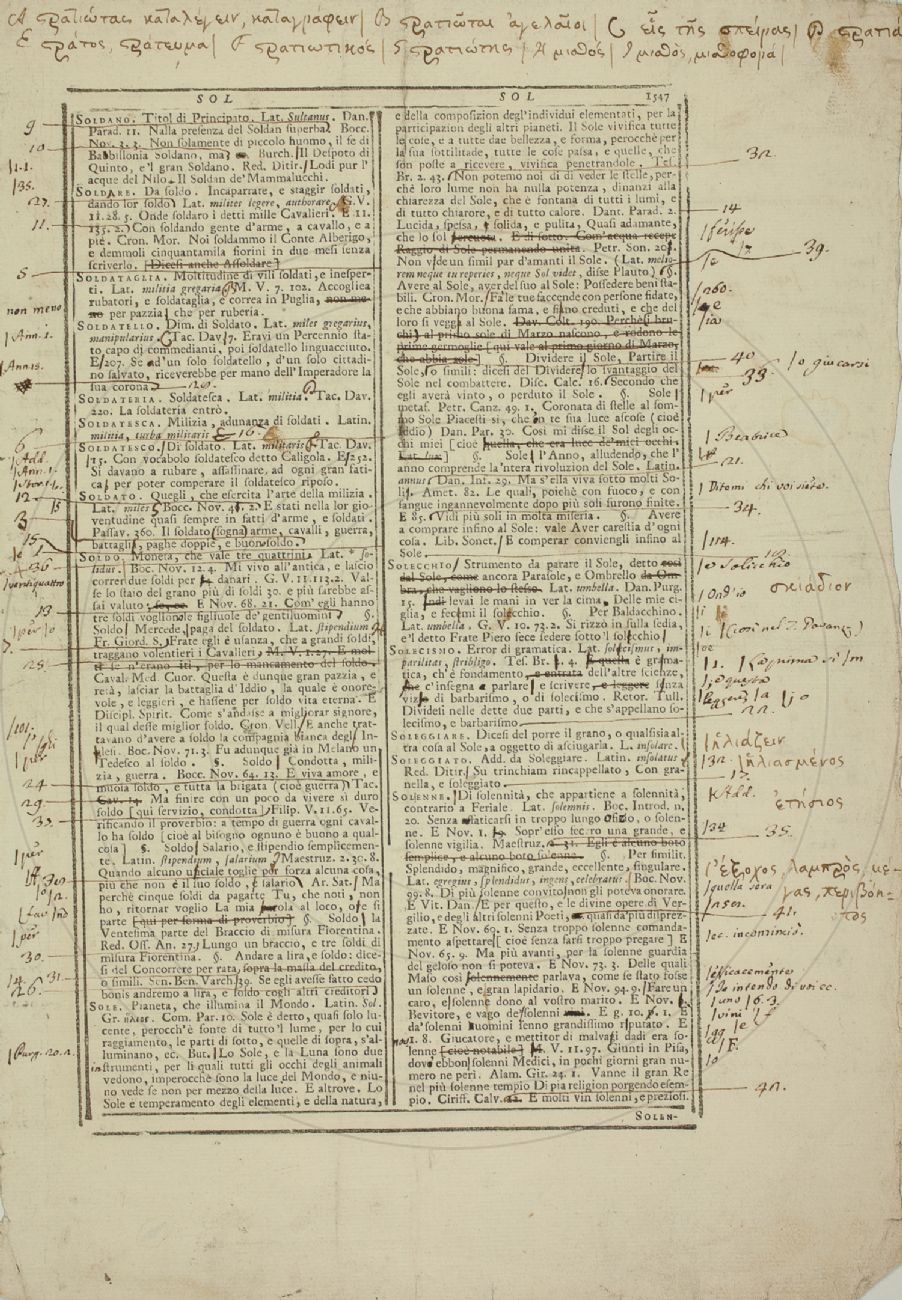 A στρατιώτας καταλέγειν, καταγράφειν | B στρατιῶται ἀγελαῖοι | C εἷς τῆς σπείρας | D στρατιά
E στράτος, στράτευμα | F στρατιωτικός | G στρατιώτης | H μισθός | I μισθός, μισθοφορά |
SOL
SOL 1547
SOLDANO. Titol di Principato. Lat. Sultanus. Dan.
Parad. 11. Nalla presenza del Soldan superba. Bocc.
Nov. 3. 3. Non solamente di piccolo huomo, il fe di
Babbillonia Soldano, ma Burch. Il Despoto di
Quinto, e'l gran Soldano. Red. Ditir. Lodi pur l'
acque del Nilo Il Soldan de' Mammalucchi.
SOLDARE. Da soldo. Incaparrare, e staggir soldati,
dando lor soldo Lat. milites legere, authorare G. V.
11. 28. 5. Onde soldaro i detti mille Cavalieri. E 11.
135. 2. Con soldando gente d'arme, a cavallo, e a
piè. Cron. Mor. Noi soldammo il Conte Alberigo,
e demmoli cinquantamila fiorini in due mesi senza
scriverlo. [Dicesi anche Assoldare]
SOLDATAGLIA. Moltitudine di vili soldati, e inesper-
ti. Lat. militia gregaria M. V. 7. 102. Accogliea
rubatori, e soldataglia, e correa in Puglia, non me-
no per pazzia che per ruberia.
SOLDATELLO. Dim. di Soldato. Lat. miles gregarius,
manipularius. Tac. Dav. 7. Eravi un Percennio sta-
to capo di commedianti, poi soldatello linguacciuto.
E 207. Se d'un solo soldatello, d'un solo cittadi-
no salvato, riceverebbe per mano dell'Imperadore la
sua corona
SOLDATERIA. Soldatesca. Lat. militia. Tac. Dav.
220. La soldateria entrò.
SOLDATESCA. Milizia, adunanza di soldati. Latin.
militia, turba militaris
SOLDATESCO. Di soldato. Lat. militaris Tac. Dav.
15. Con vocabolo soldatesco detto Caligola. E 252.
Si davano a rubare, assassinare, ad ogni gran fati-
ca per poter comperare il soldatesco riposo.
SOLDATO. Quegli, che esercita l'arte della milizia.
Lat. miles Bocc. Nov. 41. 2. E stati nella lor gio-
ventudine quasi sempre in fatti d'arme, e soldati.
Passav. 360. Il soldato (sogna) arme, cavalli, guerra,
battagli, paghe doppie, e buon soldo.
SOLDO. Moneta, che vale tre quattrini. Lat. so-
lidus. Boc. Nov. 12. 4. Mi vivo all'antica, e lascio
correr due soldi per danari. G. V. 11. 113. 2. Val-
se lo staio del grano più di soldi 30. e più sarebbe as-
sai valuto E Nov. 68. 21. Com'egli hanno
tre soldi vogliono le figliuole de' gentiluomini §.
Soldo Mercede paga del soldato. Lat. stipendium
Fr. Giord. S. Frate egli è usanza, che a grandi soldi
traggano volentieri i Cavalieri, M. V. 1. 27. E mol-
ti se n'erano iti, per lo mancamento del soldo.
Caval. Med. Cuor. Questa è dunque gran pazzia, e
reta, lasciar la battaglia d'Iddio, la quale è onore-
vole, e leggieri, e hassene per soldo vita eterna. E
Discipl. Spirit. Come s'andasse a migliorar signore,
il qual desse miglior soldo. Cron. Vell. E anche trat-
tavano d'avere a soldo la compagnia bianca degl'In-
glesi. Boc. Nov. 71. 3. Fu adunque già in Melano un
Tedesco al soldo. §. Soldo Condotta, mili-
zia, guerra. Bocc. Nov. 64. 13. E viva amore, e
muoia soldo, e tutta la brigata (cioè guerra) Tac.
Dav. 14. Ma finire con un poco da vivere sì duro
soldo [qui servizio, condotta] Filip. V. 11. 65. Ve-
rificando il proverbio: a tempo di guerra ogni caval-
lo ha soldo [cioè al bisogno ognuno è buono a qual-
cosa] §. Soldo Salario, e stipendio semplicemen-
te. Latin. stipendium, salarium Maestruz. 2. 30. 8.
Quando alcuno uficiale toglie per forza alcuna cosa,
più che non è il suo soldo, e salario Ar. Sat. Ma
perchè cinque soldi da pagarte Tu, che noti, non
ho, ritornar voglio La mia parola al loco, ove si
parte [qui per forma di proverbio] §. Soldo la
Ventesima parte del Braccio di misura Fiorentina.
Red. Oss. An. 27. Lungo un braccio, e tre soldi di
misura Fiorentina. §. Andare a lira, e soldo: dice-
si del Concorrere per rata, sopra la massa del credito,
o simili. Sen. Ben. Varch. 39. Se egli avesse fatto cedo
bonis andremo a lira, e soldo cogli altri creditori
SOLE. Pianeta, che illumina il Mondo. Latin. Sol.
Gr. ἥλιος. Com. Par. 10. Sole è detto, quasi solo lu-
cente, perocch'è fonte di tutto 'l lume, per lo cui
raggiamento, le parti di sotto, e quelle di sopra, s'al-
luminano, ec. But. Lo Sole, e la Luna sono due
instrumenti, per li quali tutti gli occhi degli animali
vedono, imperocchè sono la luce del Mondo, e niu-
no vede se non per mezzo della luce. E altrove. Lo
Sole e temperamento degli elementi, e della natura,
e della composizion degl'individui elementati, per la
participazion degli altri pianeti. Il Sole vivifica tutte
le cose, e a tutte dae bellezza, e forma, perocchè per
la sua sottilitade, tutte le cose passa, e quelle, che
son poste a ricevere, vivifica penetrandole. Tes.
Br. 2. 43. Non potemo noi di dì veder le stelle, per-
chè loro lume non ha nulla potenza, dinanzi alla
chiarezza del Sole, che è fontana di tutti i lumi, e
di tutto chiarore, e di tutto calore. Dant. Parad. 2.
Lucida, spessa, solida, e pulita, Quasi adamante,
che lo sol percuota. E di sotto. Com'acqua recepe
Raggio di Sole permanendo unita. Petr. Son. 201.
Non vide un simil par d'amanti il Sole. (Lat. melio-
rem neque tu reperies, neque Sol videt, disse Plauto.) §.
Avere al Sole, aver del suo al Sole: Possedere beni sta-
bili. Cron. Mor. Fa le tue faccende con persone fidate,
e che abbiano buona fama, e siano creduti, e che del
loro si vegga al Sole. Dav. Colt. 190. Perchè i bru-
chi al primo sole di Marzo nascono, e rodono le
prime germoglie [qui vale al primo giorno di Marzo,
che abbia sole] §. Dividere il Sole, Partire il
Sole, o simili: dicesi del Dividere lo svantaggio del
Sole nel combattere. Disc. Calc. 16. Secondo che
egli averà vinto, o perduto il Sole. §. Sole
metaf. Petr. Canz. 49. 1. Coronata di stelle al som-
mo Sole Piacesti sì, che in te sua luce ascose (cioè
Iddio) Dan. Par. 30. Così mi disse il Sol degli oc-
chi miei [cioè quella, che era luce de' miei occhi.
Lat. lux] §. Sole l'Anno, alludendo, che l'
anno comprende la 'ntera rivoluzion del Sole. Latin.
annus Dan. Inf. 29. Ma s'ella viva sotto molti So-
li. Amet. 82. Le quali, poichè con fuoco, e con
sangue ingannevolmente dopo più soli furono finite.
E 85. Vidi più soli in molta miseria. §. Avere
a comprare infino al Sole: vale Aver carestia d'ogni
cosa. Lib. Sonet. E comperar conviengli insino al
Sole.
SOLECCHIO. Strumento da parare il Sole, detto così
dal Sole, come ancora Parasole, e Ombrello da Om-
bra, che vagliono lo stesso. Lat. umbella. Dan. Purg.
15. Indi levai le mani in ver la cima, Delle mie ci-
glia, e fecimi il solecchio. §. Per Baldacchino.
Lat. umbella. G. V. 10. 73. 2. Si rizzò in sulla sedia,
e'l detto Frate Piero fece sedere sotto 'l solecchio
SOLECISMO. Error di gramatica. Lat. solecismus, im-
parilitas, stribligo. Tes. Br. 4. E quella è grama-
tica, ch'è fondamento, e entrata dell'altre scienze,
che c'insegna a parlare e scrivere, e leggere senza
vizio di barbarismo, o di solecismo. Retor. Tull.
Dividesi nelle dette due parti, e che s'appellano so-
lecismo, e barbarismo
SOLEGGIARE. Dicesi del porre il grano, o qualsisia al-
tra cosa al Sole, a oggetto di asciugarla. L. insolare.
SOLEGGIATO. Add. da Soleggiare. Latin. insolatus
Red. Ditir. Su trinchiam rincappellato, Con gra-
nella, e soleggiato.
SOLENNE. Di solennità, che appartiene a solennità,
contrario a Feriale. Lat. solemnis. Boc. Introd. n.
20. Senza faticarsi in troppo lungo ofizio, o solen-
ne. E Nov. 1. Sopr'esso fecero una grande, e
solenne vigilia. Maestruz. 2. 31. Egli è alcuno boto
semplice, e alcuno boto solenne. §. Per similit.
Splendido, magnifico, grande, eccellente, singulare.
Lat. egregius, splendidus, ingens, celebratus Boc. Nov.
99. 8. Di più solenne convito non gli poteva onorare.
E Vit. Dan. E per questo, e le divine opere di Ver-
gilio, e degli altri solenni Poeti, quasi da più disprez-
zate. E Nov. 69. 1. Senza troppo solenne comanda-
mento aspettare [cioè senza farsi troppo pregare] E
Nov. 65. 9. Ma più avanti, per la solenne guardia
del geloso non si poteva. E Nov. 73. 3. Delle quali
Maso così solennemente parlava, come se stato fosse
un solenne, e gran lapidario. E Nov. 94. 9. Fare un
caro, e solenne dono al vostro marito. E Nov.
Bevitore, e vago de' solenni E g. 10. p. 1. E
da' solenni huomini senno grandissimo riputato. E
1. 8. Giucatore, e mettitor di malvagi dadi era so-
lenne [cioè notabile] M. V. 11. 97. Giunti in Pisa,
dove ebbon solenni Medici, in pochi giorni gran nu-
mero ne perì. Alam. Gir. 24. 1. Vanne il gran Re
nel più solenne tempio Di pia religion porgendo esem-
pio. Ciriff. Calv. E molti vin solenni, e preziosi.
SOLEN-
9
10
27.
11.
5
non meno
20.
16.
6
12
3
15
ventiquattro
13
25
24
29
33.
30.
31.
26.
Purg. 20. 2.
32.
14
39.
260.
40
o giucarsi
33.
per
Beatrice
21.
Ditemi chi voi siete.
34.
114.
Solicchio
σκιάδιον
22.
ἡλιάζειν
ἡλιασμένος
17.
Add.
ἐτήσιος
35.
ἔξοχος, λαμπρός, μέ-
γας, περιβόη-
τος
quella sera
41.
ec. incomincio.
efficacemente
Io intendo di voi ec.
uno 6. 3.
vini
42.